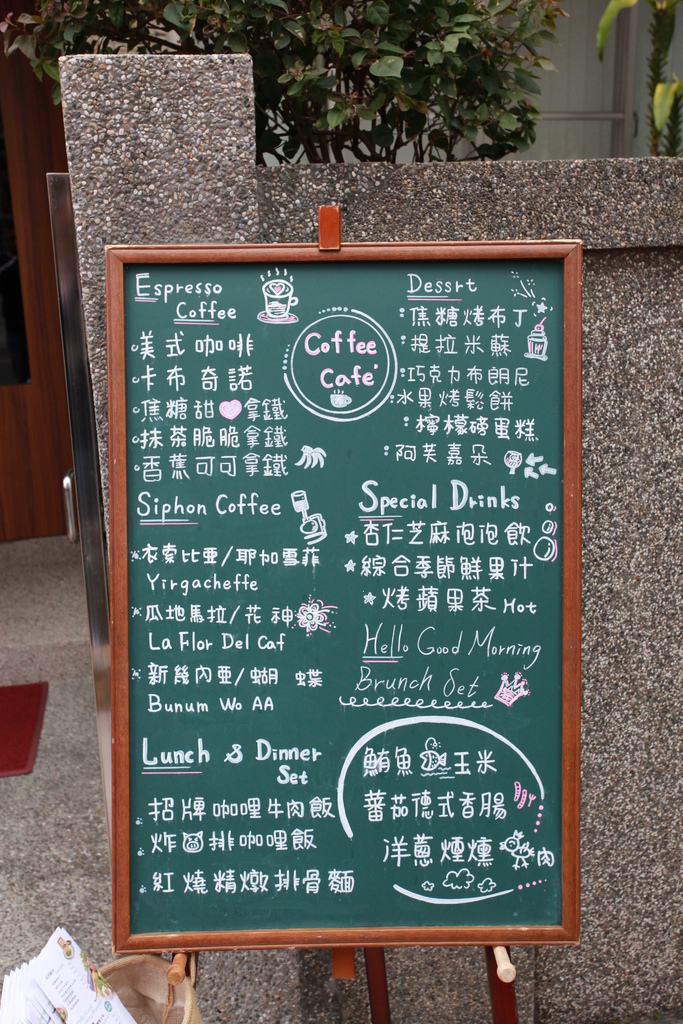 Espresso
Coffee
美式咖啡
卡布奇諾
焦糖甜拿鐵
抹茶脆脆拿鐵
香蕉可可拿鐵
Coffee
Cafe'
Dessrt
焦糖烤布丁
提拉米蘇
巧克力布朗尼
水果烤鬆餅
檸檬磅蛋糕
阿芙嘉朵
Siphon Coffee
衣索比亞/耶加雪菲
Yirgacheffe
瓜地馬拉/花神
La Flor Del Caf
新幾內亞/蝴蝶
Bunum Wo AA
Special Drinks
杏仁芝麻泡泡飲
綜合季節鮮果汁
烤蘋果茶 Hot
Hello Good Morning
Brunch Set
鮪魚玉米
蕃茄德式香腸
洋蔥煙燻肉
Lunch & Dinner
Set
招牌咖哩牛肉飯
炸排咖哩飯
紅燒精燉排骨麵